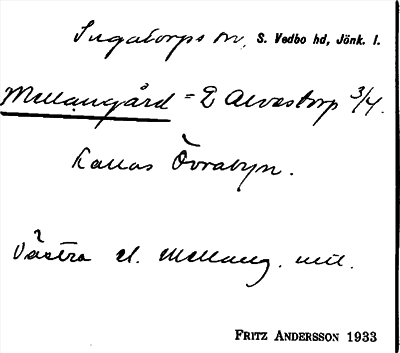 Ingatorps sn, S. Vedbo hd, Jönk. l.
Mellangård = 2 Alvastorp 3/4.
Kallas Övrabyn.
Västra el. Mellang. utt.
FRITZ ANDERSSON 1933